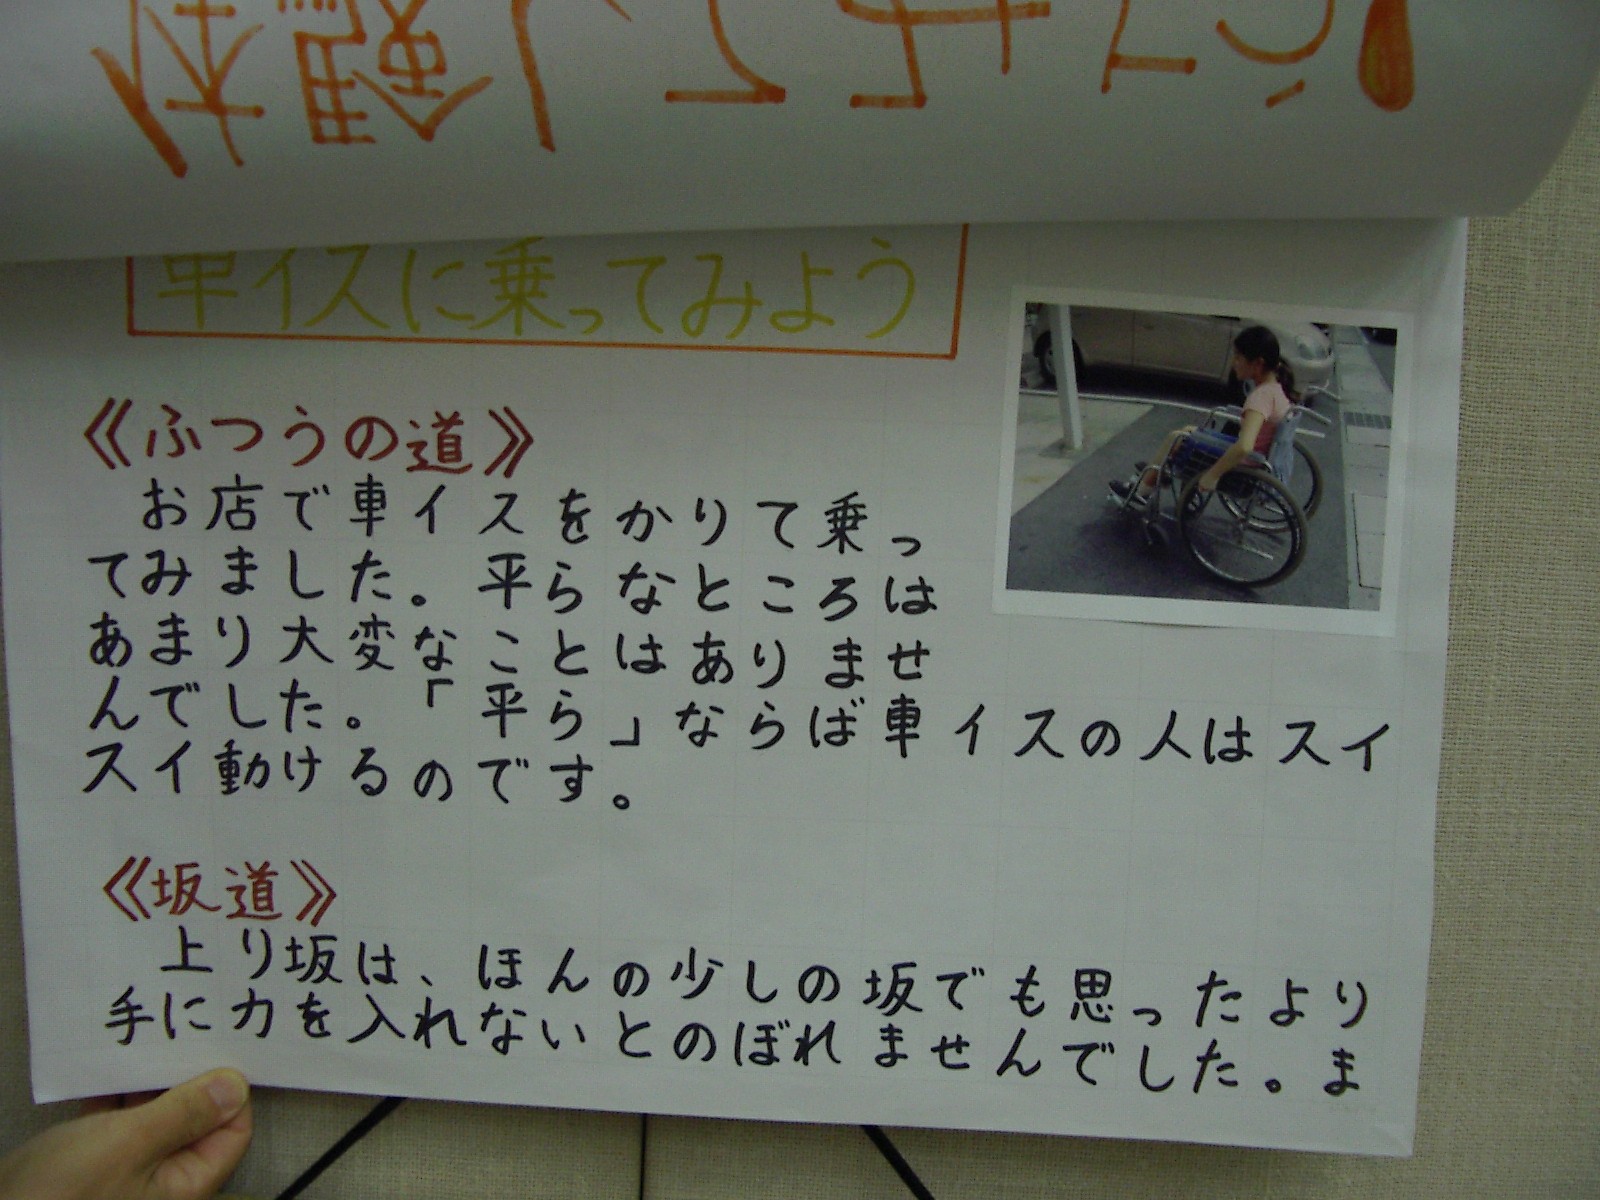 体験してみよう!
車イスに乗ってみよう
《ふつうの道》
お店で車イスをかりて乗っ
てみました。平らなところは
あまり大変なことはありませ
んでした。「平ら」ならば車イスの人はスイ
スイ動けるのです。
《坂道》
上り坂は、ほんの少しの坂でも思ったより
手に力を入れないとのぼれませんでした。ま